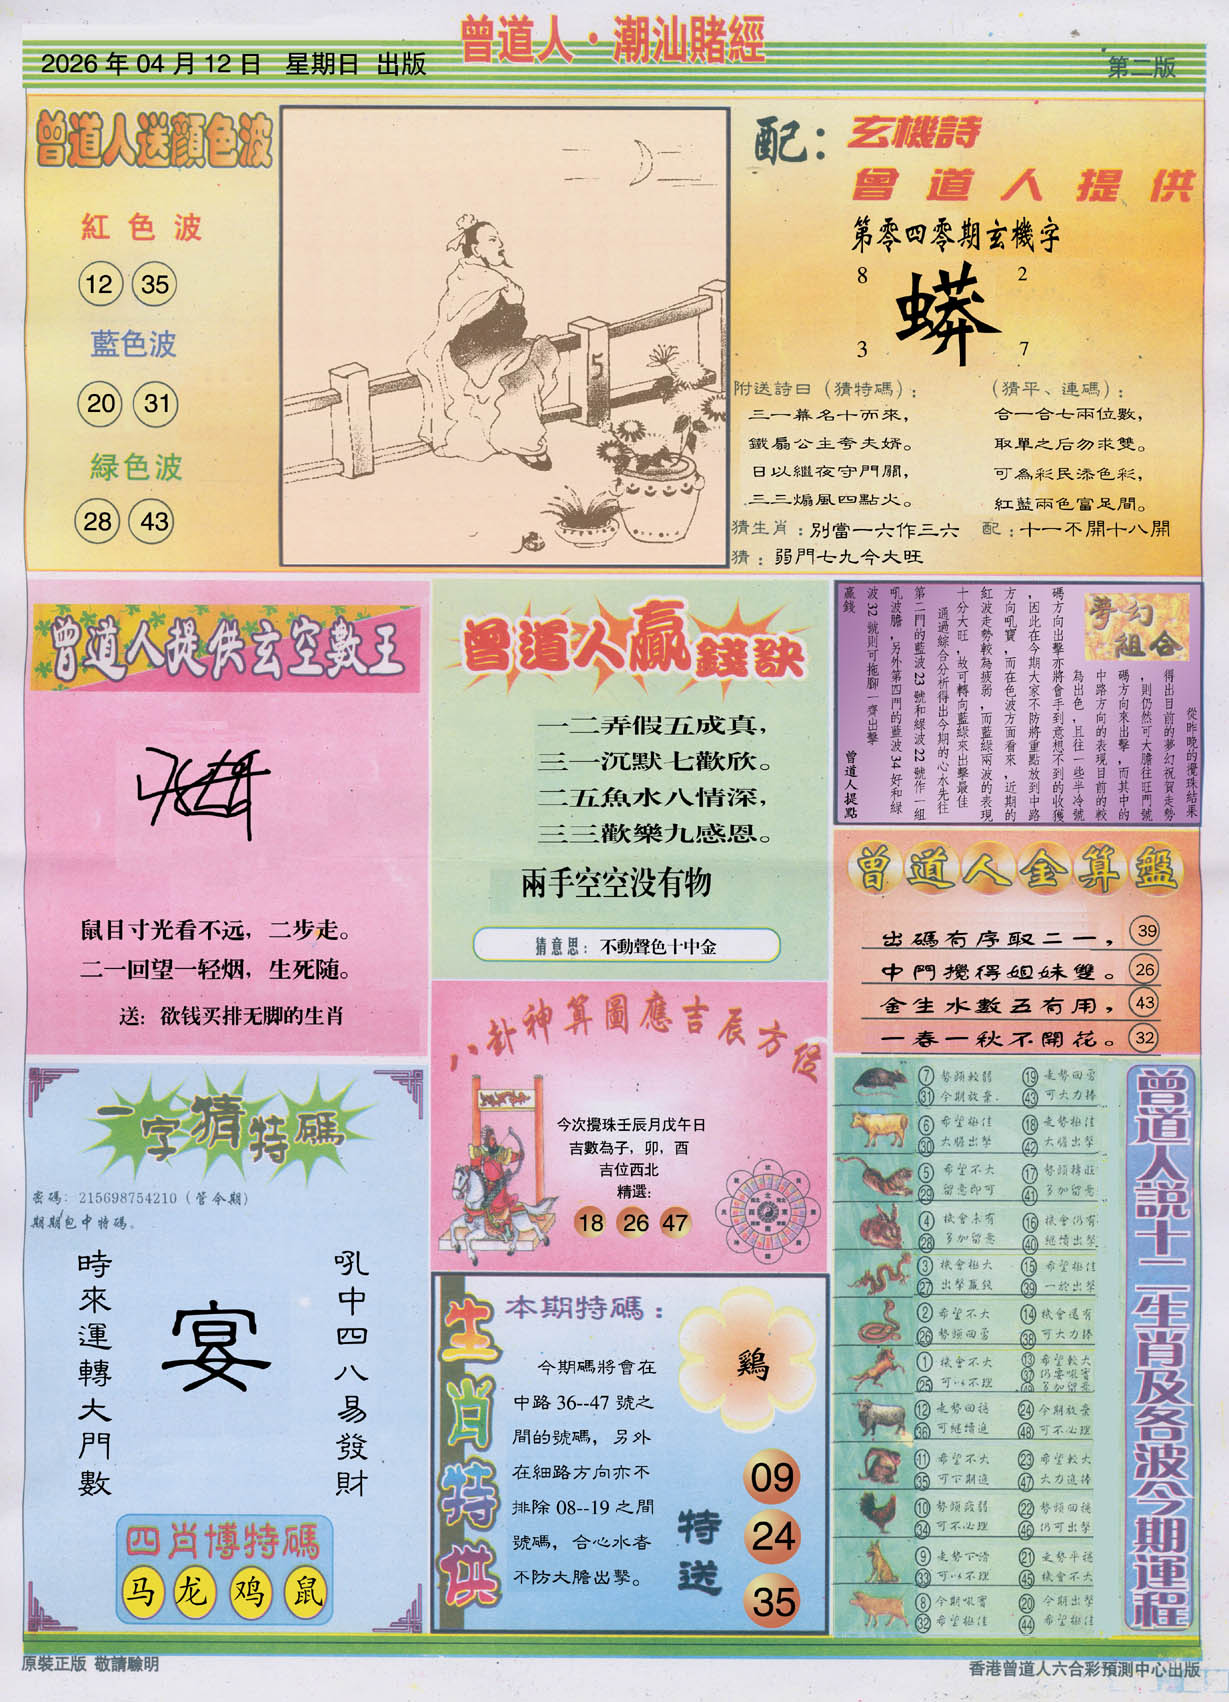 曾道人·潮汕賭經
2026 年 04 月 12 日 星期日 出版
第二版
曾道人送顏色波
紅色波
12 35
藍色波
20 31
緑色波
28 43
5
配：
玄機詩
曾道人提供
第零四零期玄機字
8 2
蟒
3 7
附送詩曰（猜特碼）：
三一幕名十而來，
鐵扇公主夸夫婿。
日以繼夜守門關，
三三煽風四點火。
（猜平、連碼）：
合一合七兩位數，
取單之后勿求雙。
可為彩民添色彩，
紅藍兩色富足間。
猜生肖：別當一六作三六
配：十一不開十八開
猜：弱門七九今大旺
曾道人提供玄空數王
鼠目寸光看不远，二步走。
二一回望一轻烟，生死随。
送：欲钱买排无脚的生肖
曾道人贏錢訣
一二弄假五成真，
三一沉默七歡欣。
二五魚水八情深，
三三歡樂九感恩。
兩手空空没有物
猜意思：不動聲色十中金
夢幻組合
從昨晚的攪珠結果
得出目前的夢幻祝賀走勢
，則仍然可大膽往旺門號
碼方向來出擊，而其中的
中路方向的表現目前的較
為出色，且往一些半冷號
碼方向出擊亦將會手到意想不到的收獲
，因此在今期大家不防將重點放到中路
方向吼寶，而在色波方面看來，近期的
紅波走勢較為疲弱，而藍綠兩波的表現
十分大旺，故可轉向藍綠來出擊最佳
通過綜合分析得出今期的心水先往
第二門的藍波 23 號和綠波 22 號作一組
吼波膽，另外第四門的藍波 34 好和綠
波 32 號則可拖腳一齊出擊
贏錢
曾道人提點
曾道人金算盤
出碼有序取二一， 39
中門攪得姐妹雙。 26
金生水數五有用， 43
一春一秋不開花。 32
八卦神算圖應吉辰方位
今次攪珠壬辰月戊午日
吉數為子，卯，酉
吉位西北
精選：
18 26 47
一字猜特碼
密碼：215698754210（管今期）
期期包中特碼。
時來運轉大門數
宴
吼中四八易發財
四肖博特碼
马 龙 鸡 鼠
生肖特供
本期特碼：
今期碼將會在
中路 36--47 號之
間的號碼，另外
在細路方向亦不
排除 08--19 之間
號碼，合心水者
不防大膽出擊。
鷄
特送
09
24
35
曾道人説十二生肖及各波今期運程
7 勢頭較弱 19 走勢回勇
31 今期放棄 43 可大力捧
6 希望極佳 18 走勢極佳
30 大膽出擊 42 大膽出擊
5 希望不大 17 勢頭轉旺
29 留意即可 41 多加留意
4 機會未有 16 機會仍有
28 多加留意 40 繼續出擊
3 機會極大 15 希望極佳
27 出擊贏錢 39 一於出擊
2 希望不大 14 機會還有
26 勢頭回勇 38 可大力捧
1 機會不大 13 希望較大
25 可以不理 37 仍要吼實
49 多加留意
12 走勢回穩 24 今期放棄
36 可繼續追 48 可不必理
11 希望不大 23 希望較大
35 可下期追 47 大力追捧
10 勢頭疲弱 22 勢頭回穩
34 可不必理 46 仍可出擊
9 走勢下滑 21 走勢平穩
33 可以不理 45 機會不大
8 今期吼實 20 今期出擊
32 希望極佳 44 希望極佳
原裝正版 敬請驗明
香港曾道人六合彩預測中心出版